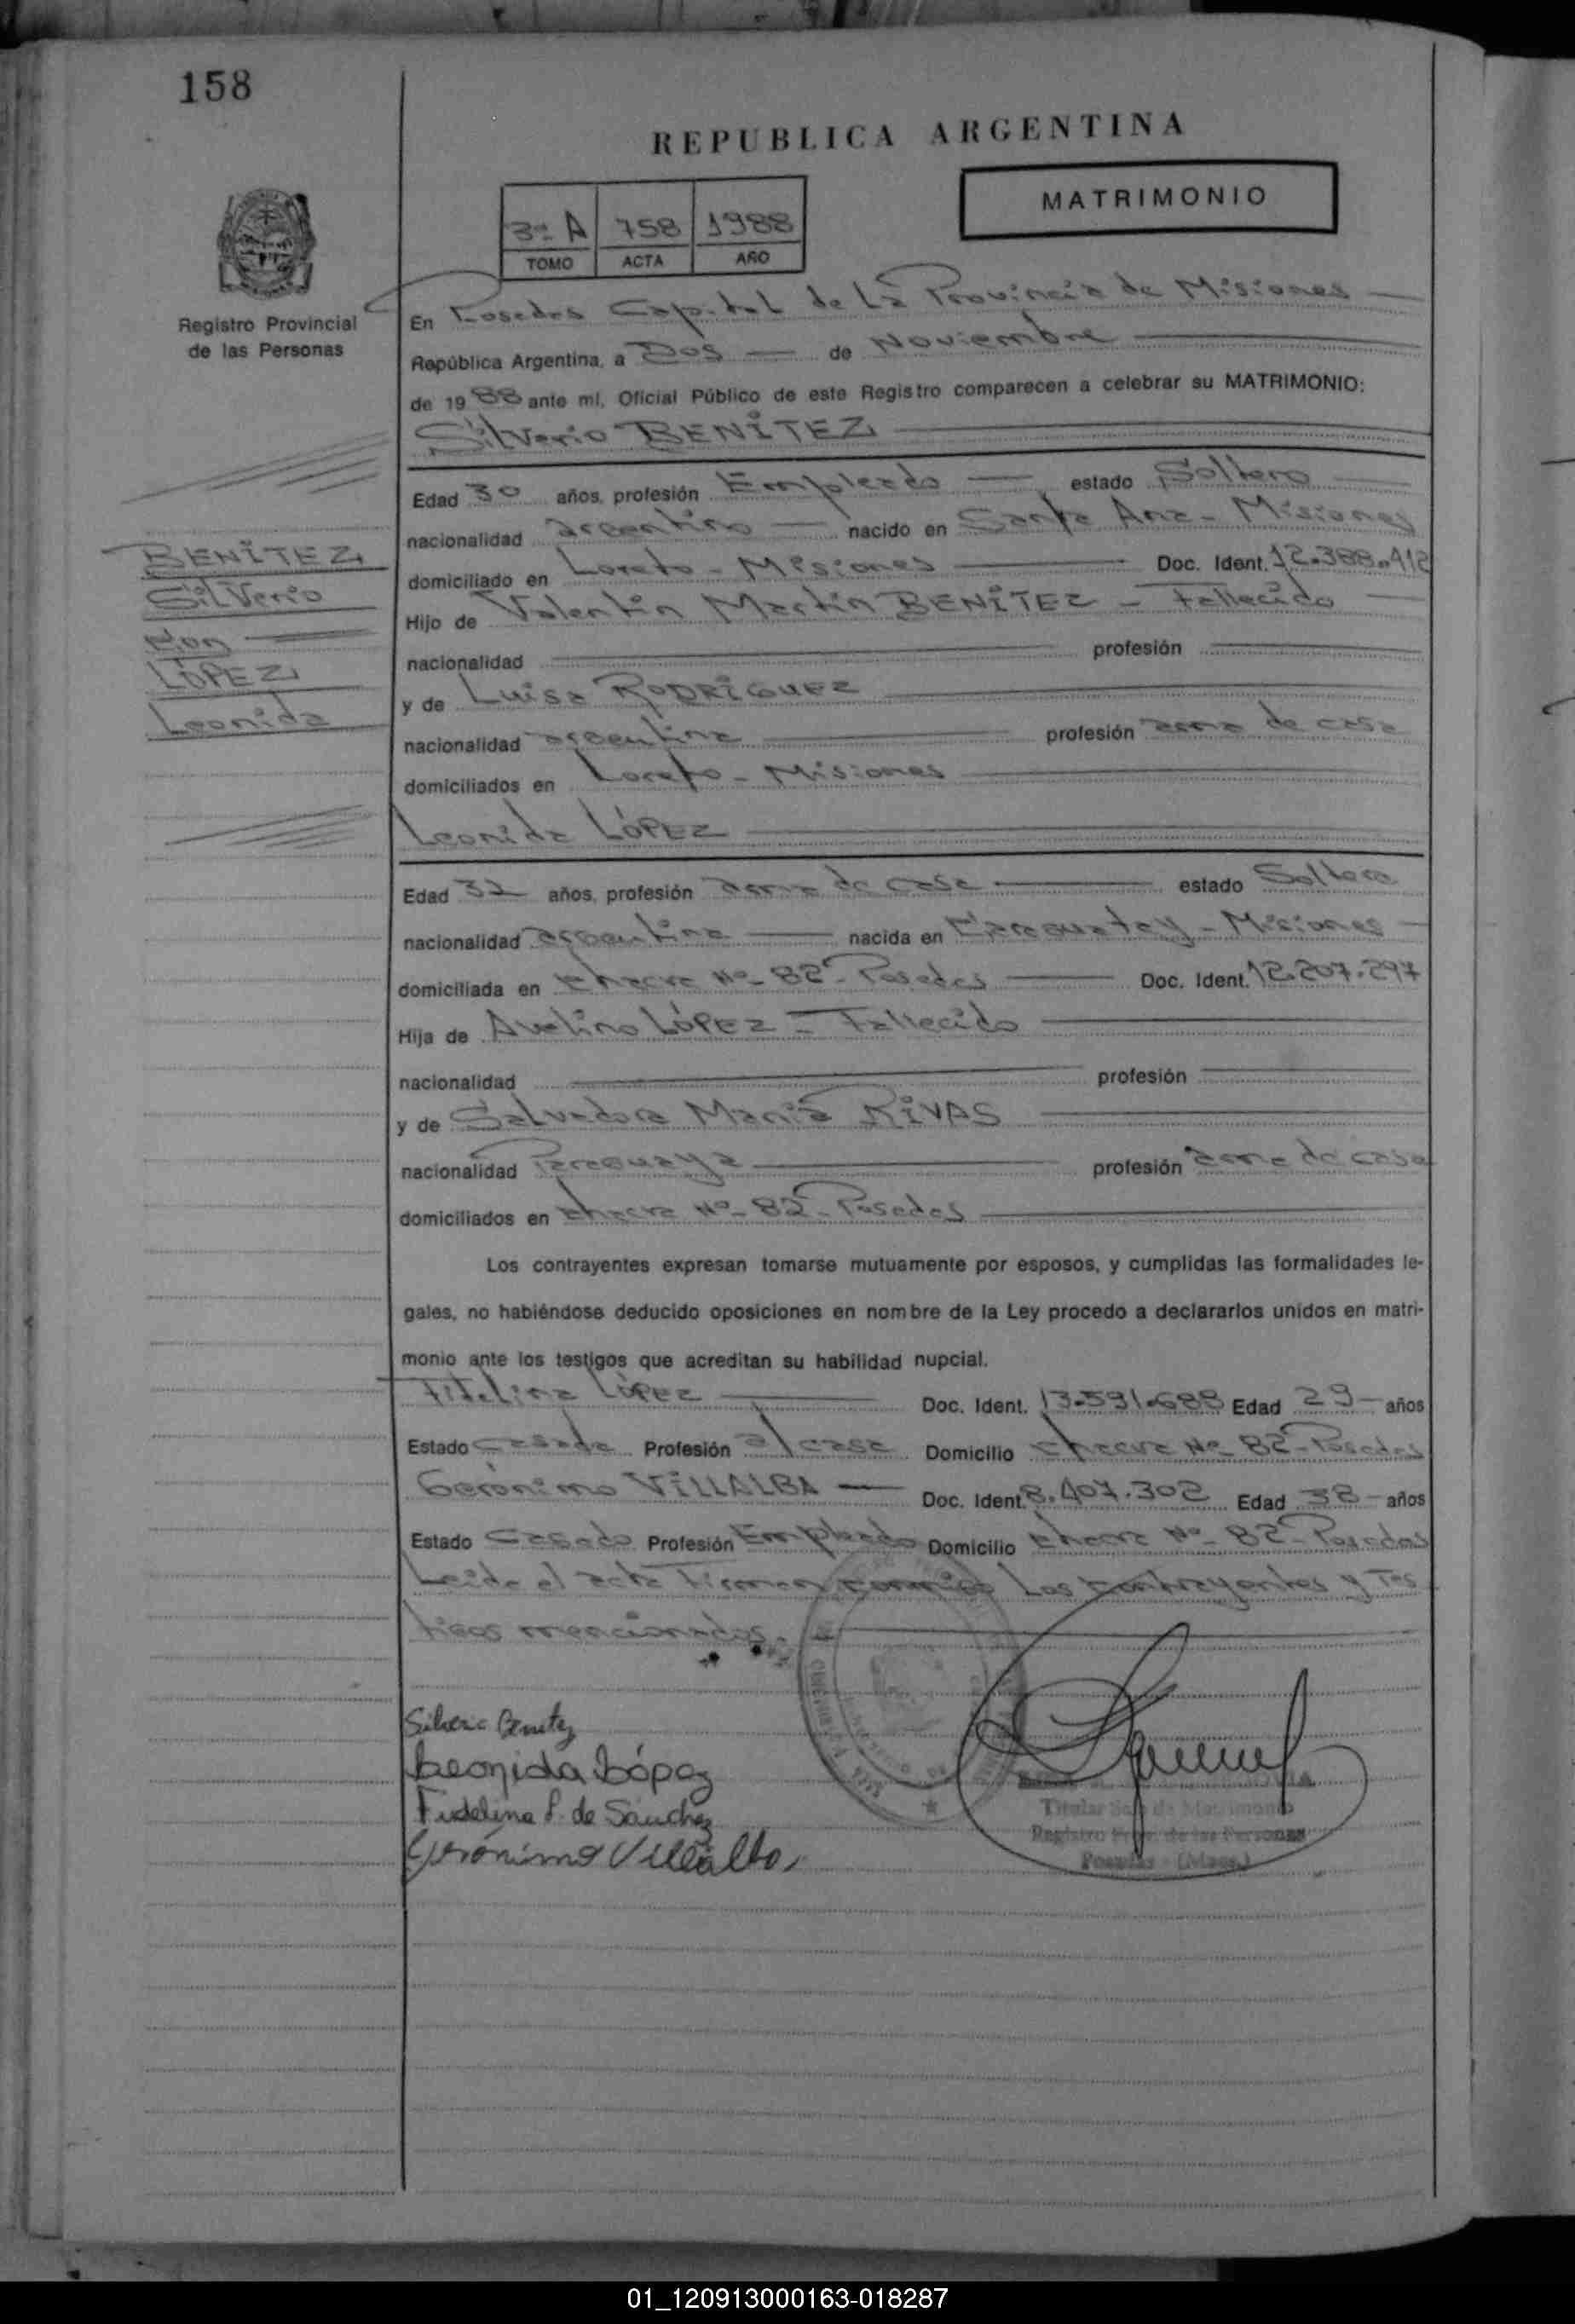 158
REPUBLICA ARGENTINA
MATRIMONIO
3º A 758 1988
TOMO ACTA AÑO
Registro Provincial
de las Personas
En Posadas Capital de La Provincia de Misiones
República Argentina, a Dos de Noviembre
de 1988 ante mí, Oficial Público de este Registro comparecen a celebrar su MATRIMONIO:
Silverio BENÍTEZ
Edad 30 años, profesión Empleado estado Soltero
nacionalidad argentino nacido en Santa Ana - Misiones
domiciliado en Loreto - Misiones Doc. Ident. 12.388.412
Hijo de Valentin Martin BENÍTEZ - Fallecido
nacionalidad profesión
y de Luisa RODRÍGUEZ
nacionalidad argentina profesión ama de casa
domiciliados en Loreto - Misiones
BENÍTEZ
Silverio
con
LÓPEZ
Leonida
Leonida LÓPEZ
Edad 32 años, profesión ama de casa estado Soltera
nacionalidad argentina nacida en Caraguatay - Misiones
domiciliada en chacra Nº 82 - Posadas Doc. Ident. 12.207.297
Hija de Avelino LÓPEZ - Fallecido
nacionalidad profesión
y de Salvadora María RIVAS
nacionalidad Paraguaya profesión ama de casa
domiciliados en chacra Nº 82 - Posadas
Los contrayentes expresan tomarse mutuamente por esposos, y cumplidas las formalidades le-
gales, no habiéndose deducido oposiciones en nombre de la Ley procedo a declararlos unidos en matri-
monio ante los testigos que acreditan su habilidad nupcial.
Fidelina LÓPEZ Doc. Ident. 13.591.688 Edad 29 años
Estado Casada Profesión a/casa Domicilio chacra Nº 82 - Posadas
Gerónimo VILLALBA Doc. Ident. 8.407.302 Edad 38 años
Estado Casado Profesión Empleado Domicilio chacra Nº 82 - Posadas
Leida el acta Firman conmigo Los contrayentes y Tes
tigos mencionados.
Silverio Benitez
Leonida López
Fidelina L. de Sanchez
Gerónimo Villalba
Titular de Matrimonio
Registro Prov. de las Personas
Posadas - (Mnes.)
01_120913000163-018287